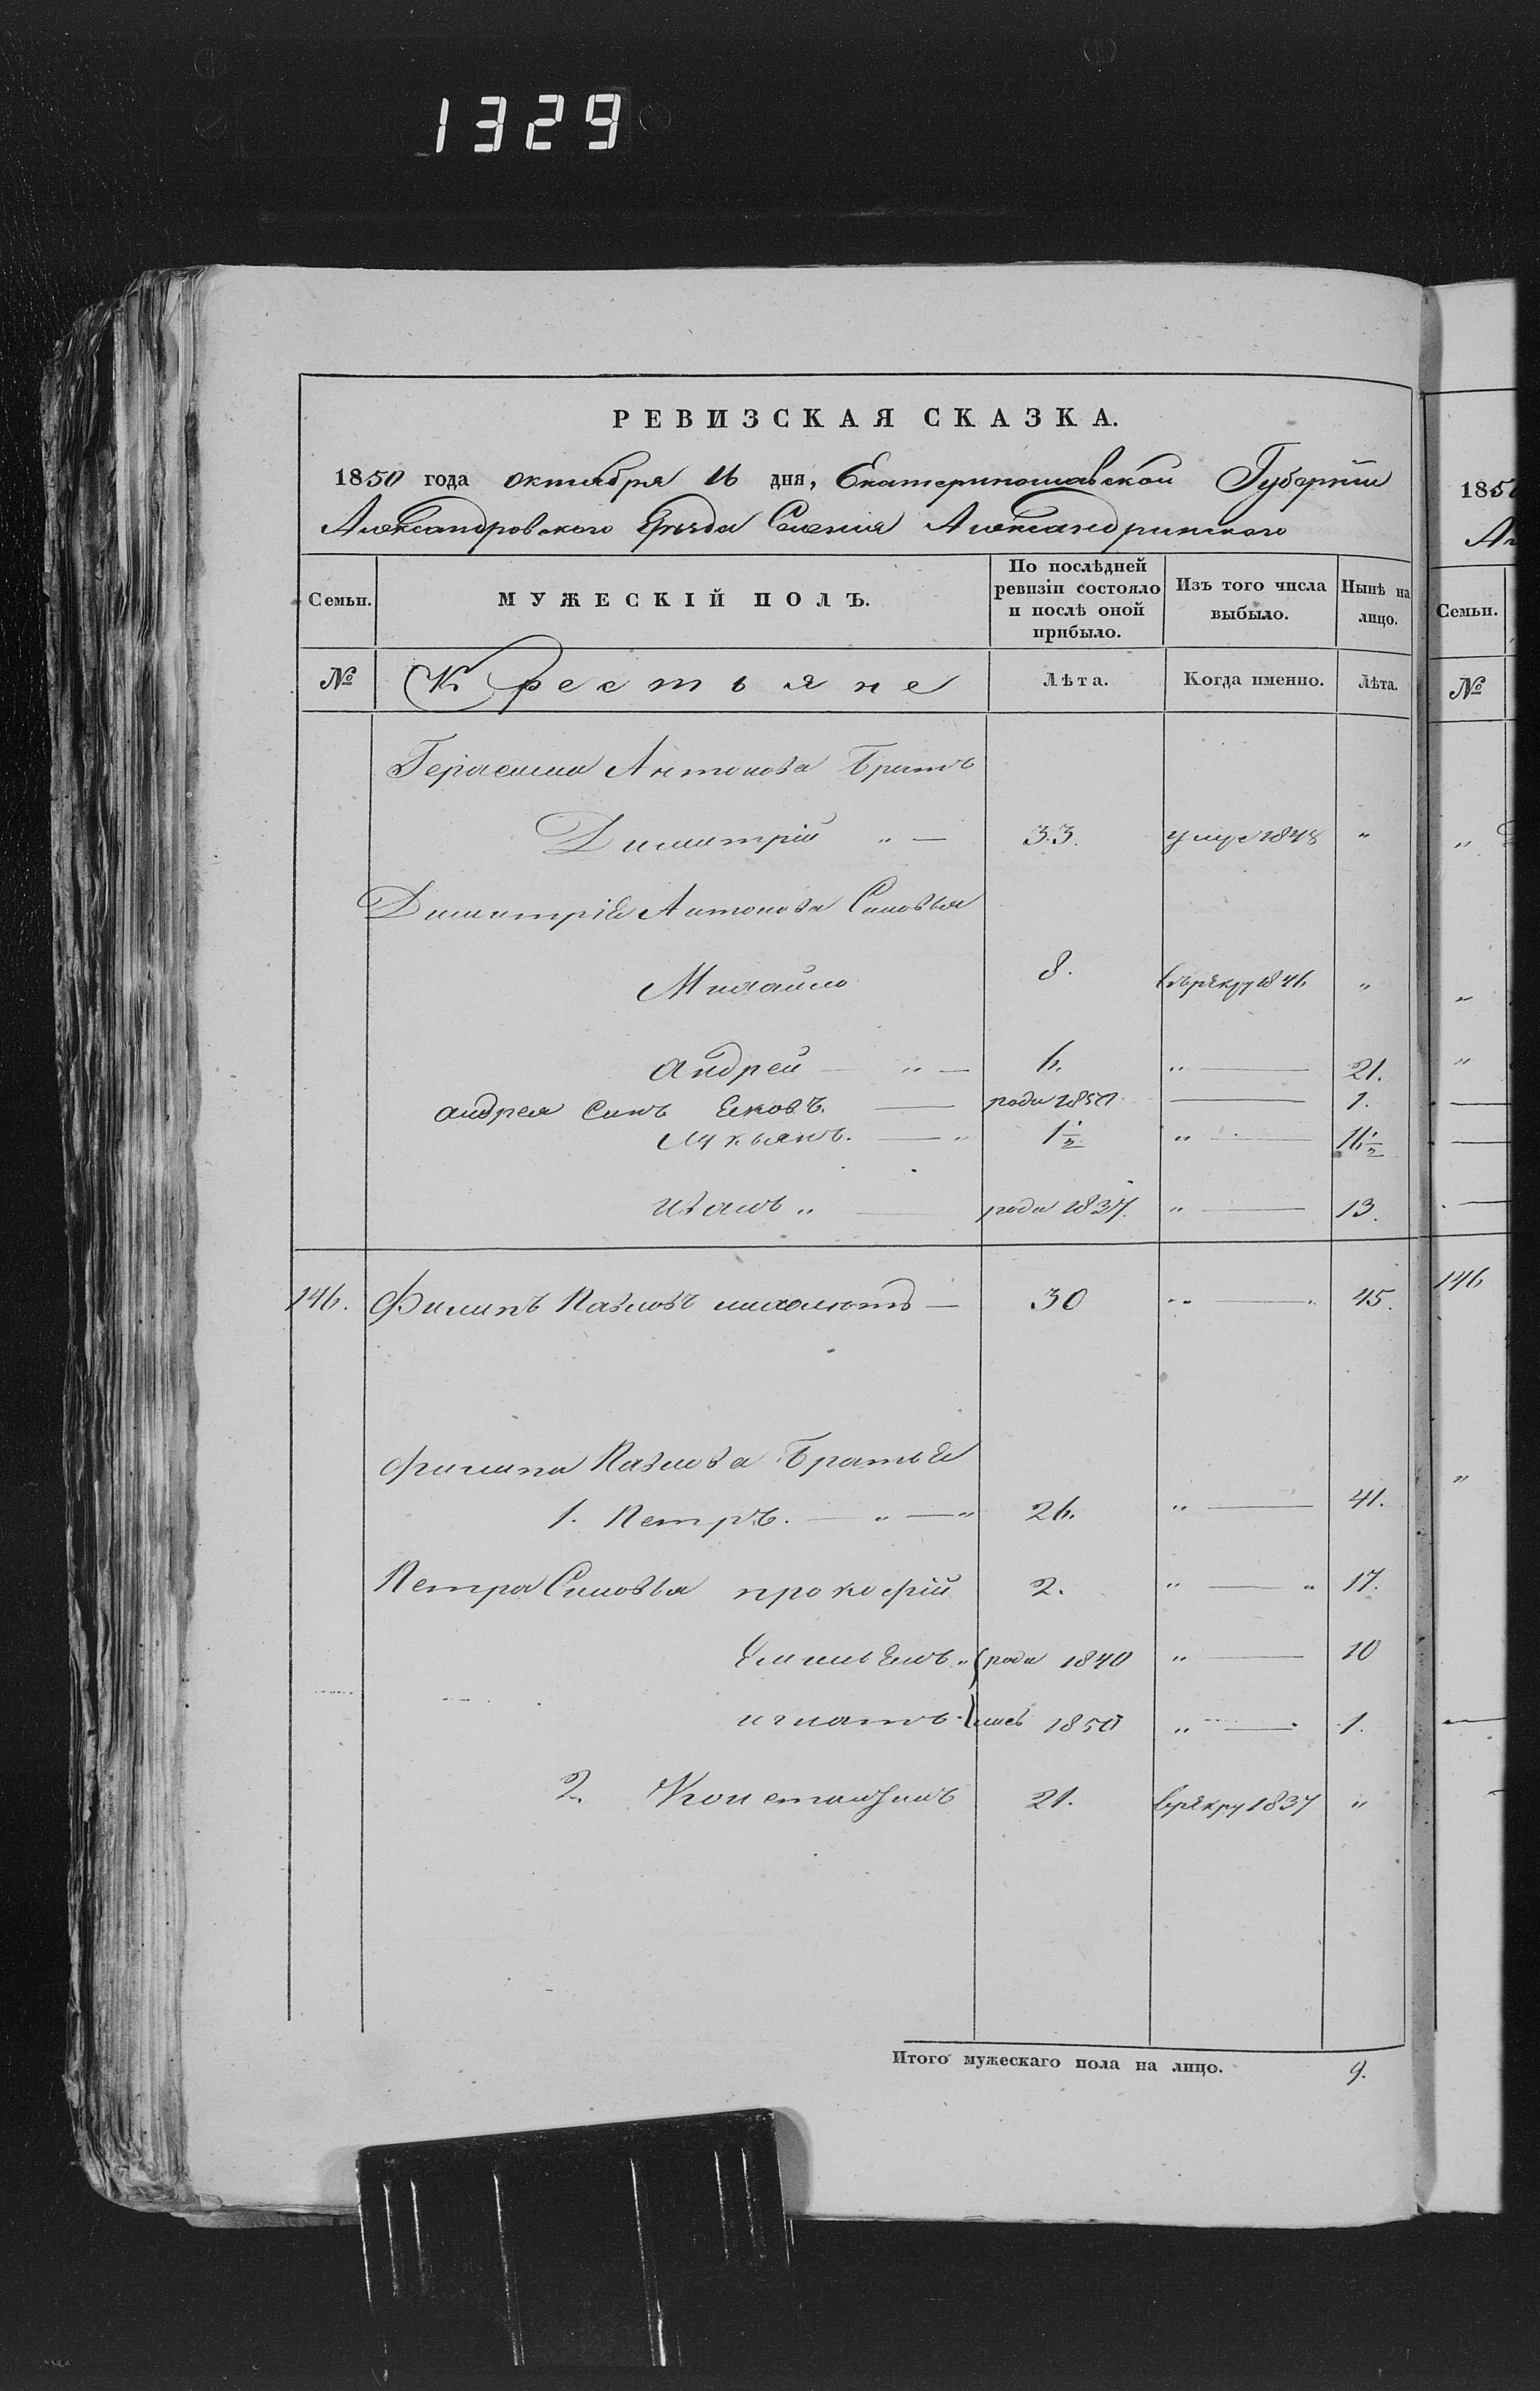 1329
РЕВИЗСКАЯ СКАЗКА.
1850 года октября 16 дня, Екатеринославской Губернии
Александровского Уезда Селения Александринского
Семьи. МУЖЕСКІЙ ПОЛЪ. По послѣдней ревизіи состояло и послѣ оной прибыло. Изъ того числа выбыло. Нынѣ на лицо.
№ Крестьяне Лѣта. Когда именно. Лѣта.
Герасима Антонова Братъ
Димитрій " — 33. умре 1848 "
Димитрія Антонова Сыновья
Михайло 8. въ рекру 1846 "
Андрей — " — 6. " — 21.
андрея Синъ Яковъ. — роди 1850. — 1.
Лукьянъ. — " 1½ " — 16½
Иванъ " — роди 1837. " — 13.
146. Филипъ Павловъ — 30 " — 45.
Филипа Павлова Братья
1. Петръ. — " — " 26. " — 41.
Петра Сыновья прокофій 2. " — " 17.
Емильянъ " роди 1840 " — 10
игнатъ лись 1850 " — 1.
2. Константинъ 21. врекру 1837 "
Итого мужескаго пола на лицо. 9.
185
Семьи.
№
146